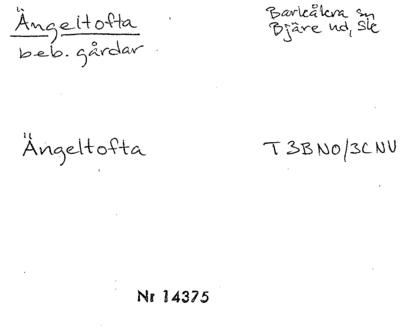 Ängeltofta
beb. gårdar
Barkåkra sn
Bjäre hd, Sk
Ängeltofta
T 3B NO/3C NV
Nr 14375